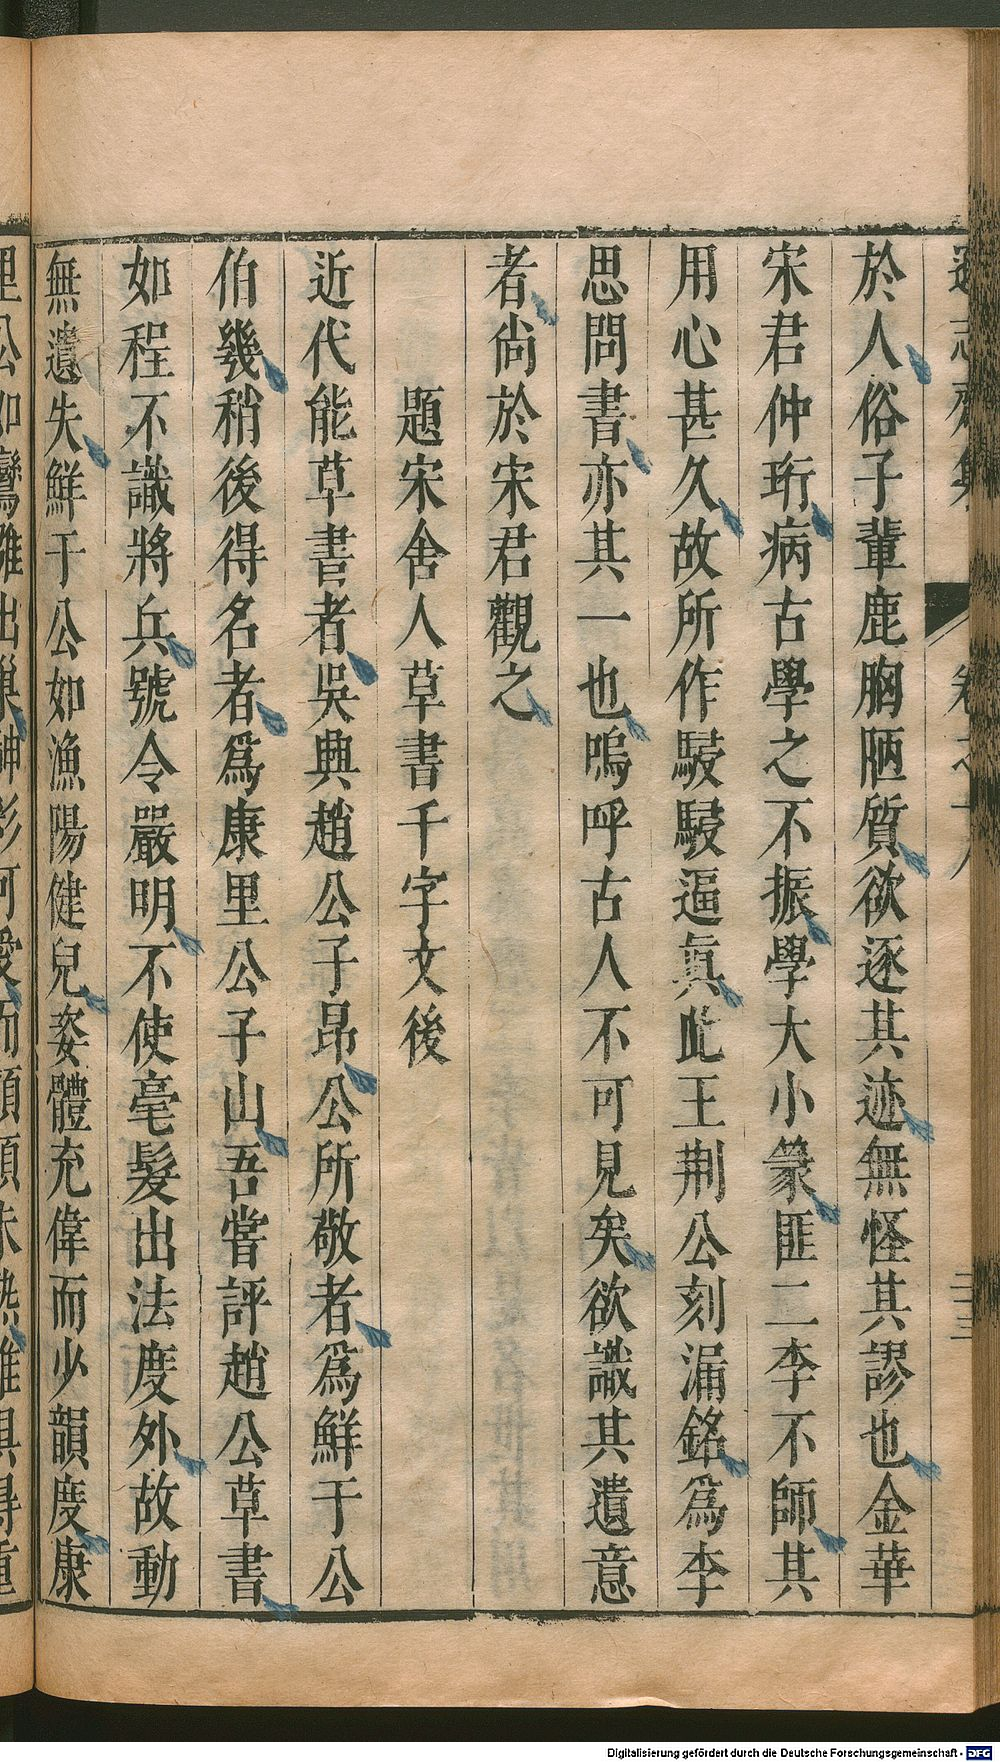 於人俗子輩鹿胸陋質欲逐其迹無怪其謬也金華
宋君仲珩病古學之不振學大小篆匪二李不師其
用心甚久故所作駸駸逼真此王荆公刻漏銘爲李
思問書亦其一也嗚呼古人不可見矣欲識其遺意
者尙於宋君觀之
題宋舍人草書千字文後
近代能草書者吳興趙公子昂公所敬者爲鮮于公
伯幾稍後得名者爲康里公子山吾嘗評趙公草書
如程不識將兵號令嚴明不使毫髮出法度外故動
無遺失鮮于公如漁陽健兒姿體充偉而少韻度康
里公如鸞雛出巢神彩可愛而頡頏未熟雖俱得重
Digitalisierung gefördert durch die Deutsche Forschungsgemeinschaft - DFG